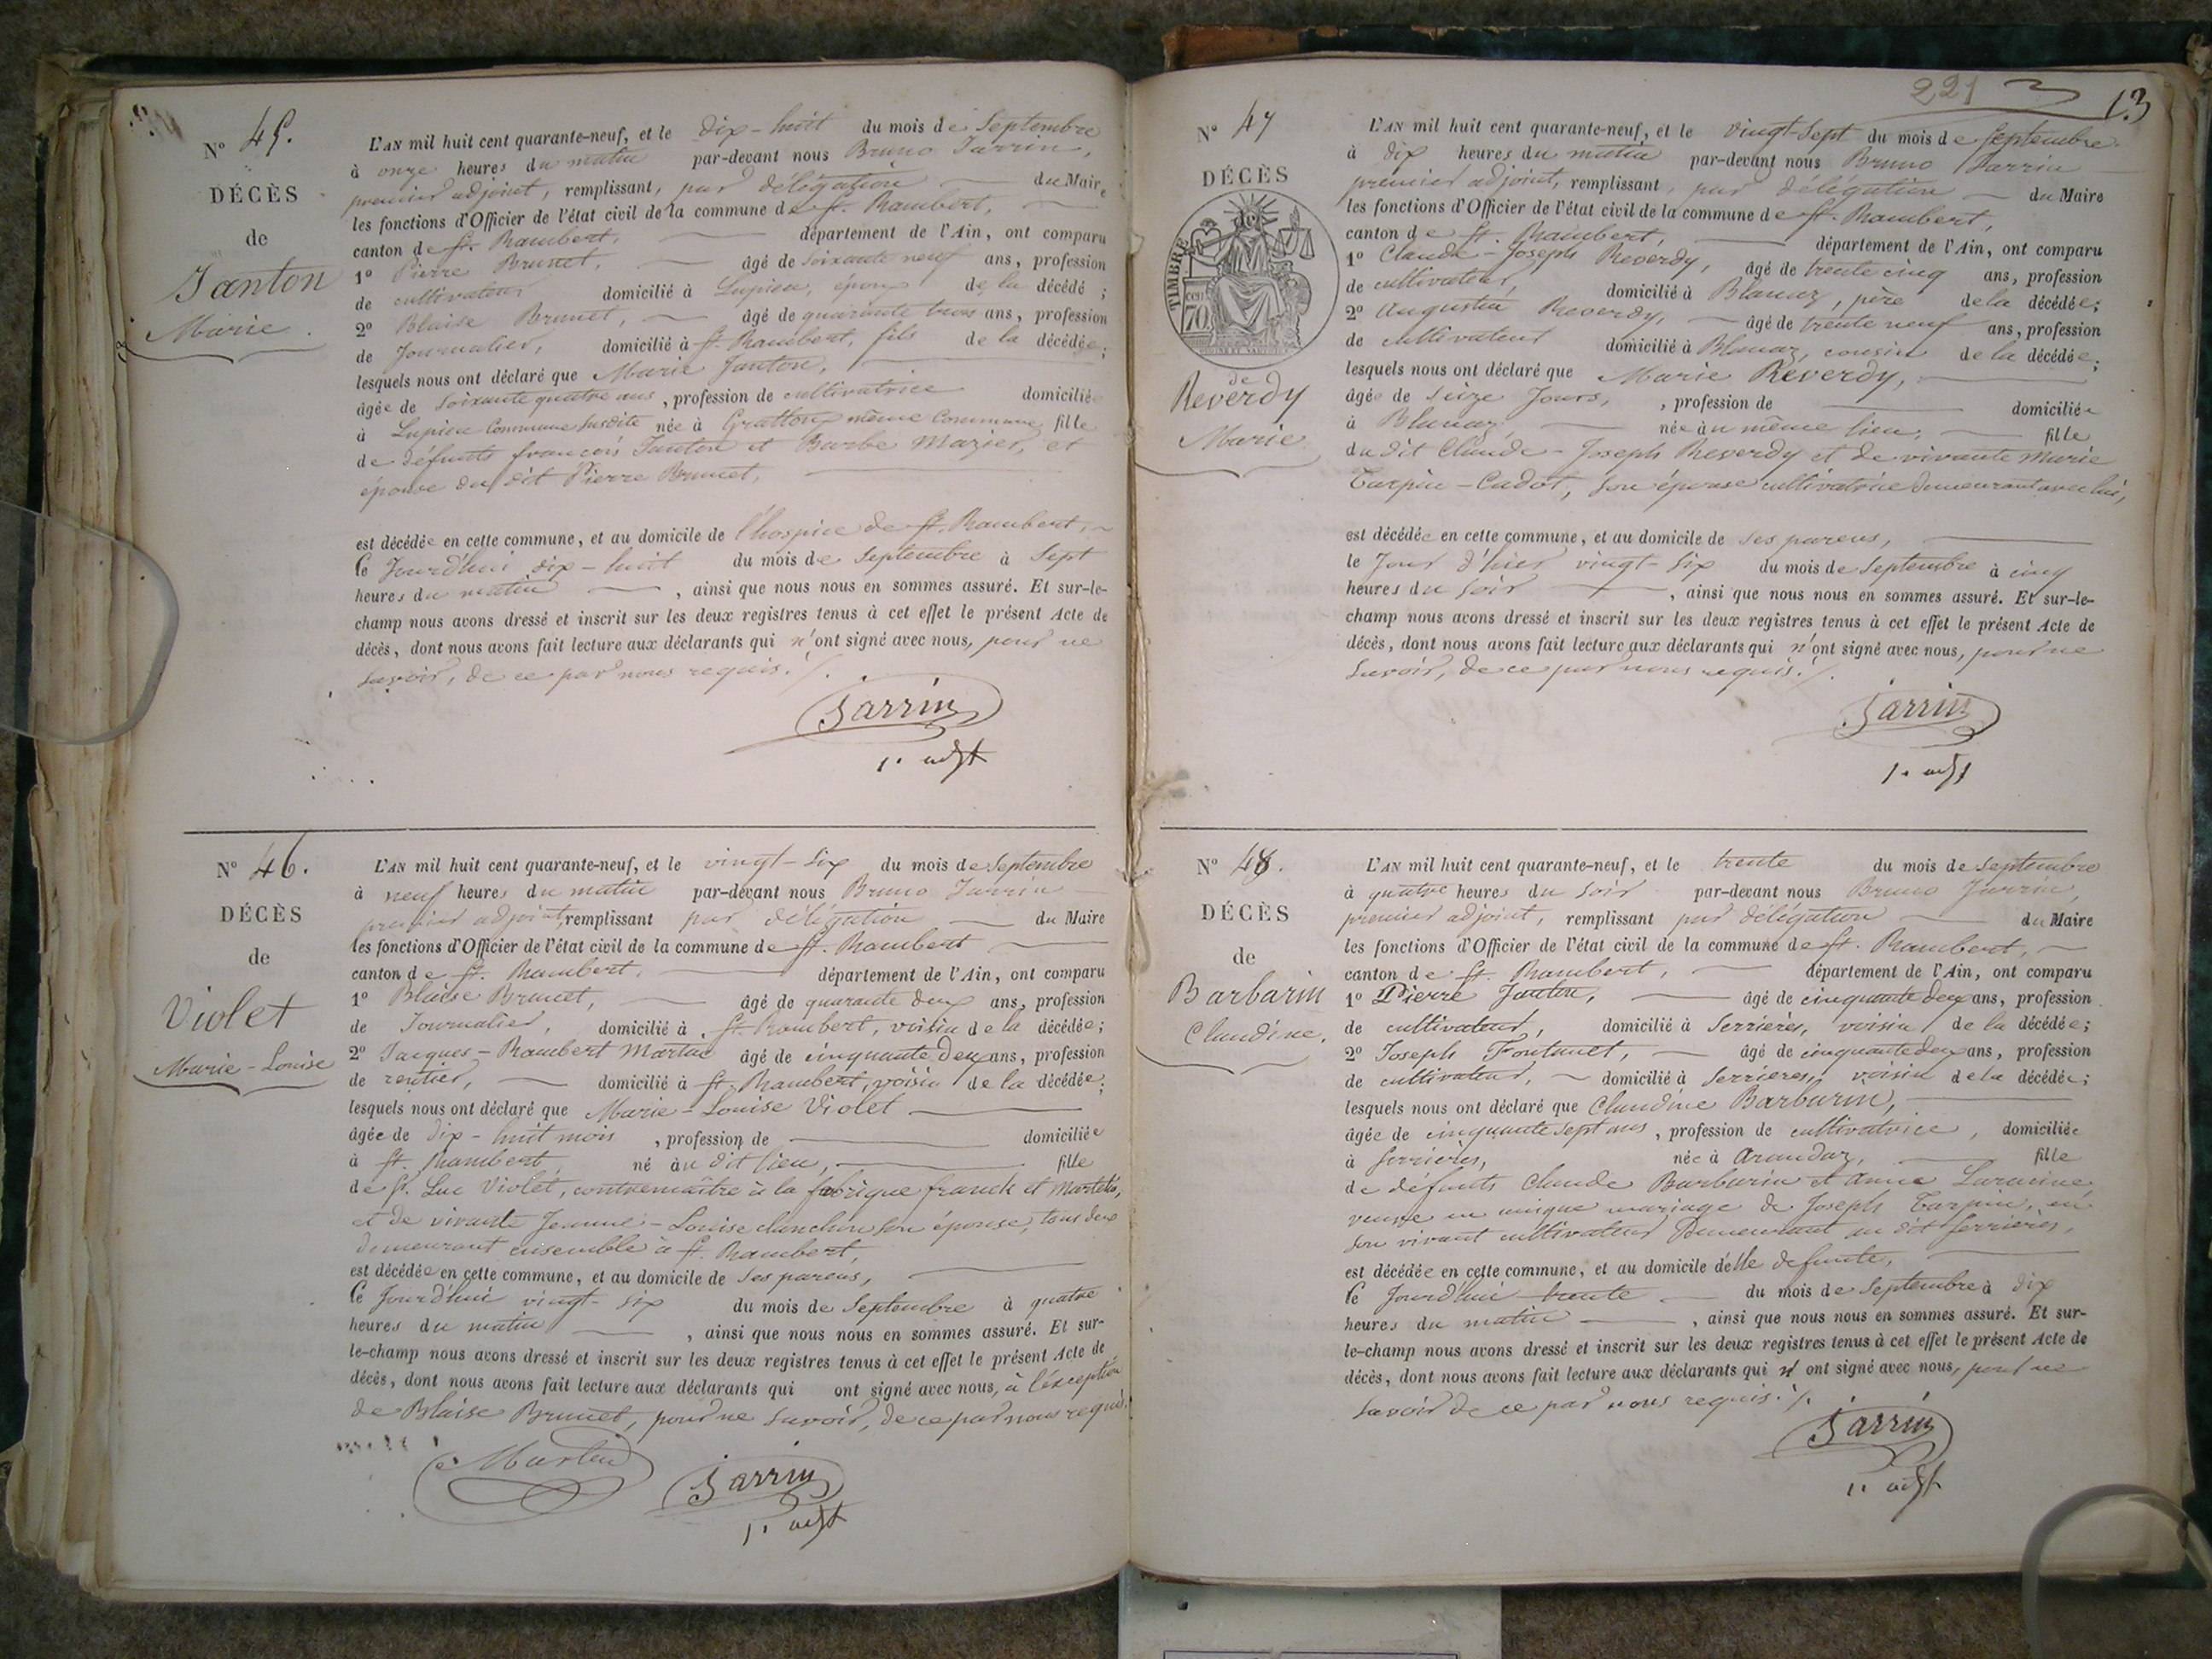 N° 45.
DÉCÈS
de
Janton
Marie.
L'AN mil huit cent quarante-neuf, et le dix-huit du mois de Septembre
à onze heures du matin par-devant nous Bruno Jarrin,
premier adjoint, remplissant, par délégation du Maire
les fonctions d'Officier de l'état civil de la commune de St. Rambert,
canton de St. Rambert, département de l'Ain, ont comparu
1° Pierre Brunet, âgé de soixante neuf ans, profession
de cultivateur domicilié à Lupieu, époux de la décédé ;
2° Blaise Brunet, âgé de quarante trois ans, profession
de Journalier, domicilié à St. Rambert, fils de la décédée;
lesquels nous ont déclaré que Marie Janton,
âgée de soixante quatre ans, profession de cultivatrice domiciliée
à Lupieu Commune susdite née à Grattoux même Commune fille
de défunts françois Janton et Barbe Mazier, et
épouse du dit Pierre Brunet,
est décédée en cette commune, et au domicile de l'hospice de St. Rambert,
le Jourd'hui dix-huit du mois de Septembre à Sept
heures du matin, ainsi que nous nous en sommes assuré. Et sur-le-
champ nous avons dressé et inscrit sur les deux registres tenus à cet effet le présent Acte de
décès, dont nous avons fait lecture aux déclarants qui n'ont signé avec nous, pour ne
savoir, de ce par nous requis. /.
Jarrin
1. adjt
N° 46.
DÉCÈS
de
Violet
Marie-Louise
L'AN mil huit cent quarante-neuf, et le vingt-six du mois de Septembre
à neuf heures du matin par-devant nous Bruno Jarrin
premier adjoint, remplissant par délégation du Maire
les fonctions d'Officier de l'état civil de la commune de St. Rambert
canton de St. Rambert, département de l'Ain, ont comparu
1° Blaise Brunet, âgé de quarante deux ans, profession
de Journalier, domicilié à St. Rambert, voisin de la décédée;
2° Jacques-Rambert Martin âgé de cinquante deux ans, profession
de rentier, domicilié à St. Rambert, voisin de la décédée;
lesquels nous ont déclaré que Marie-Louise Violet
âgée de dix-huit mois, profession de domiciliée
à St. Rambert, né au dit lieu, fille
de Sr. Luc Violet, contremaître à la fabrique franck et Martelin,
et de vivante Jeanne-Louise son épouse, tous deux
demeurant ensemble à St. Rambert,
est décédée en cette commune, et au domicile de ses parens,
le Jourd'hui vingt-six du mois de Septembre à quatre
heures du matin, ainsi que nous nous en sommes assuré. Et sur-
le-champ nous avons dressé et inscrit sur les deux registres tenus à cet effet le présent Acte de
décès, dont nous avons fait lecture aux déclarants qui ont signé avec nous, à l'exception
de Blaise Brunet, pour ne savoir, de ce par nous requis.
Martin
Jarrin
1. adjt
221
13
N° 47
DÉCÈS
TIMBRE
cen
70
de
Reverdy
Marie
L'AN mil huit cent quarante-neuf, et le vingt-sept du mois de Septembre
à dix heures du matin par-devant nous Bruno Jarrin
premier adjoint, remplissant, par délégation du Maire
les fonctions d'Officier de l'état civil de la commune de St. Rambert,
canton de St. Rambert, département de l'Ain, ont comparu
1° Claude-Joseph Reverdy, âgé de trente cinq ans, profession
de cultivateur, domicilié à Blanaz, père de la décédée;
2° Augustin Reverdy, âgé de trente neuf ans, profession
de cultivateur domicilié à Blanaz, cousin de la décédée;
lesquels nous ont déclaré que Marie Reverdy,
âgée de seize Jours, , profession de domiciliée
à Blanaz née au même lieu, fille
du dit Claude-Joseph Reverdy et de vivante Marie
Tarpin-Cadot, son épouse cultivatrice demeurant avec lui,
est décédée en cette commune, et au domicile de ses parens,
le Jour d'hier vingt-six du mois de Septembre à cinq
heures du soir, ainsi que nous nous en sommes assuré. Et sur-le-
champ nous avons dressé et inscrit sur les deux registres tenus à cet effet le présent Acte de
décès, dont nous avons fait lecture aux déclarants qui n'ont signé avec nous, pour ne
savoir, de ce par nous requis. /.
Jarrin
1. adjt
N° 48.
DÉCÈS
de
Barbarin
Claudine.
L'AN mil huit cent quarante-neuf, et le trente du mois de Septembre
à quatre heures du soir par-devant nous Bruno Jarrin,
premier adjoint, remplissant par délégation du Maire
les fonctions d'Officier de l'état civil de la commune de St. Rambert,
canton de St. Rambert, département de l'Ain, ont comparu
1° Pierre Janton, âgé de cinquante deux ans, profession
de cultivateur, domicilié à Serrières, voisin de la décédée;
2° Joseph Fontanet, âgé de cinquante deux ans, profession
de cultivateur, domicilié à Serrières, voisin de la décédée;
lesquels nous ont déclaré que Claudine Barbarin,
âgée de cinquante sept ans, profession de cultivatrice, domiciliée
à Serrières, née à Arandaz, fille
de défunts Claude Barbarin et Anne Laracine,
veuve en unique mariage de Joseph Tarpin, en
son vivant cultivateur demeurant au dit Serrières,
est décédée en cette commune, et au domicile d'elle defunte,
le Jourd'hui trente du mois de Septembre à dix
heures du matin, ainsi que nous nous en sommes assuré. Et sur-
le-champ nous avons dressé et inscrit sur les deux registres tenus à cet effet le présent Acte de
décès, dont nous avons fait lecture aux déclarants qui n'ont signé avec nous, pour ne
savoir de ce par nous requis. /.
Jarrin
1. adjt